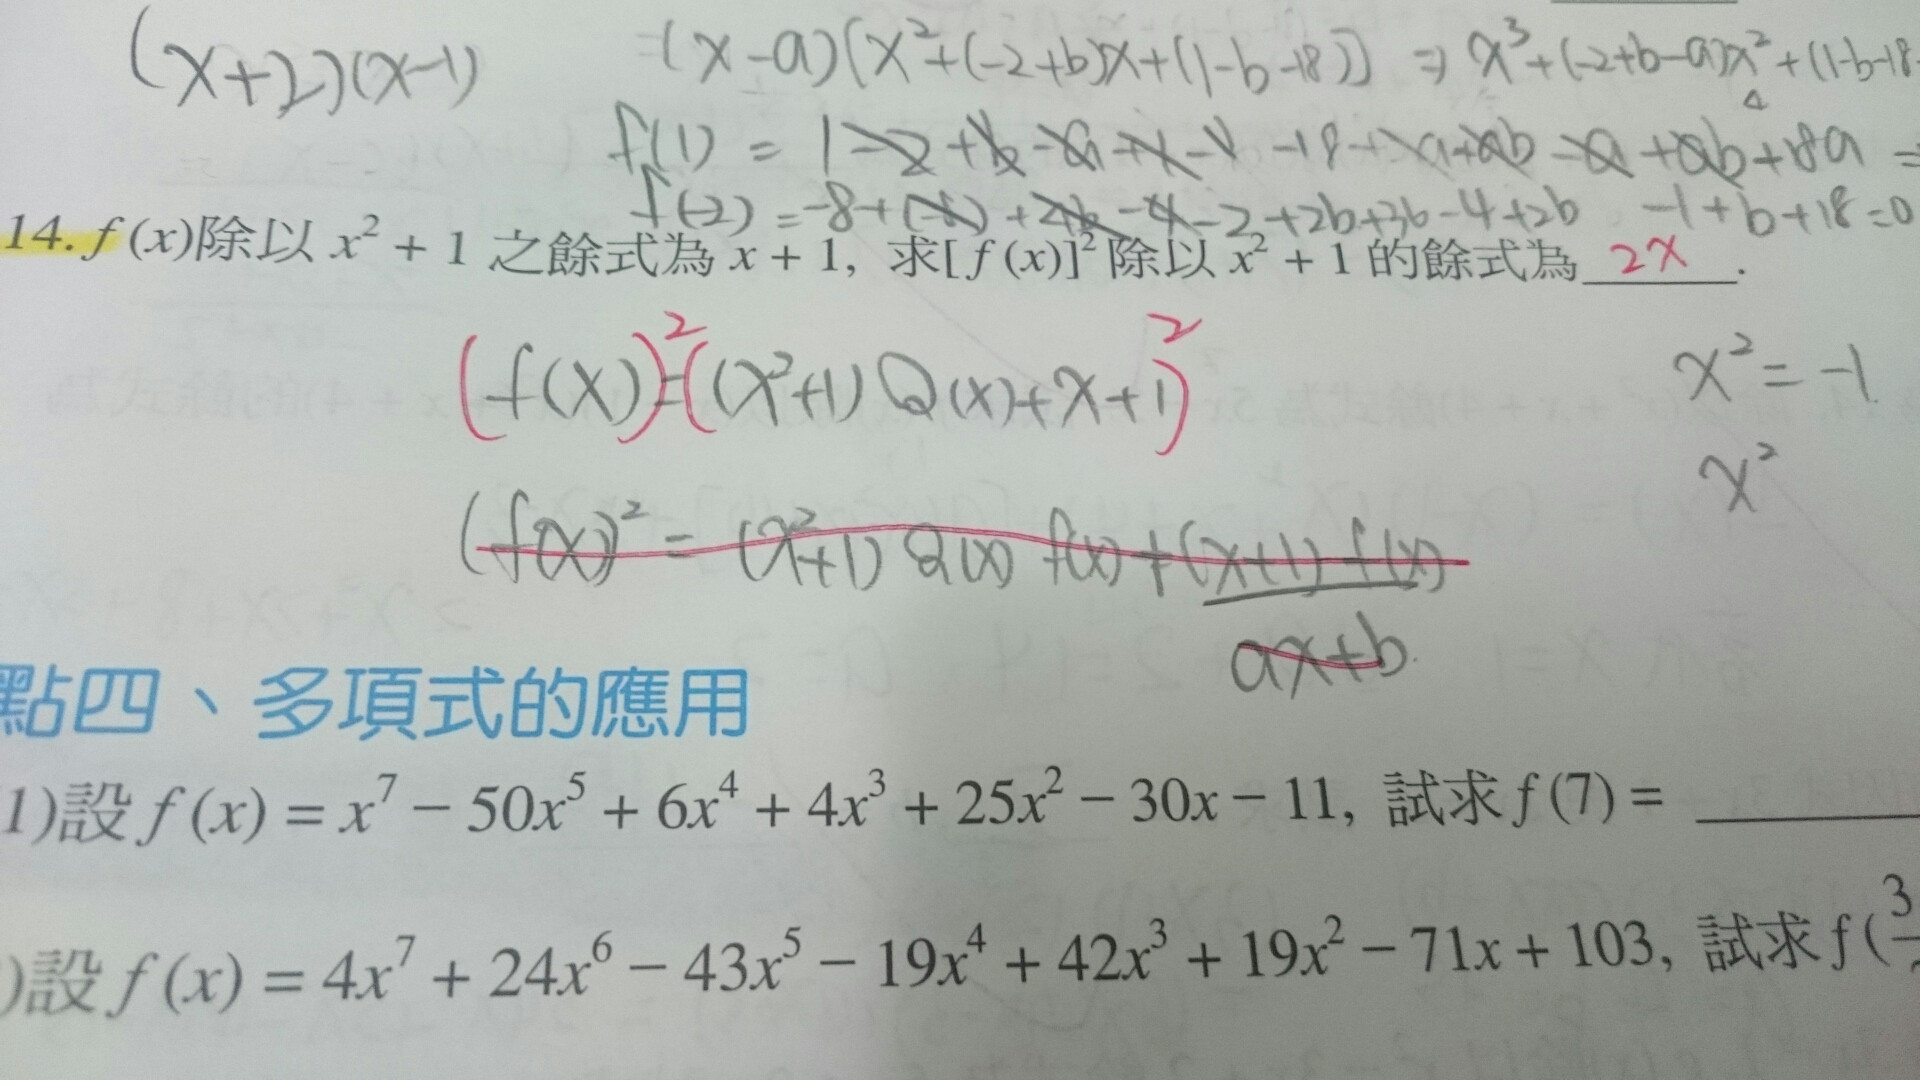 (x+2)(x-1)
=(x-a)(x²+(-2+b)x+(1-b-18)] ⇒ x³+(-2+b-a)x²+(1-b-18
f(1) = 1-2+b-a+1-1-18
f(-2) = -8+(-8)+4b-4-2+2b+36-4+2b -1+b+18=0
14. f(x)除以 x² + 1 之餘式為 x + 1, 求[f(x)]² 除以 x² + 1 的餘式為 2x .
(f(x))²=((x²+1)Q(x)+x+1)²
x² = -1
x²
(f(x))² = (x²+1) Q(x) f(x)+(x+1) f(x)
ax+b
點四、多項式的應用
1)設 f(x) = x⁷ − 50x⁵ + 6x⁴ + 4x³ + 25x² − 30x − 11, 試求 f(7) =
)設 f(x) = 4x⁷ + 24x⁶ − 43x⁵ − 19x⁴ + 42x³ + 19x² − 71x + 103, 試求 f(3